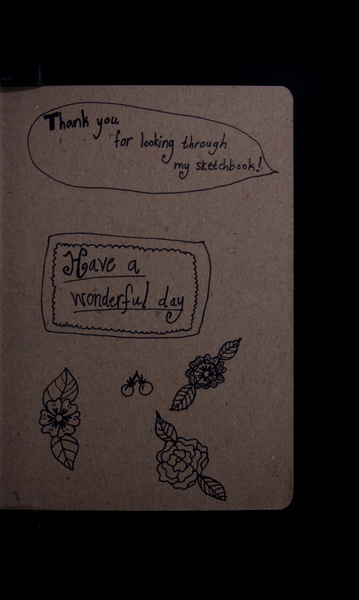 Thank you
for looking through
my sketchbook!
Have a
wonderful day